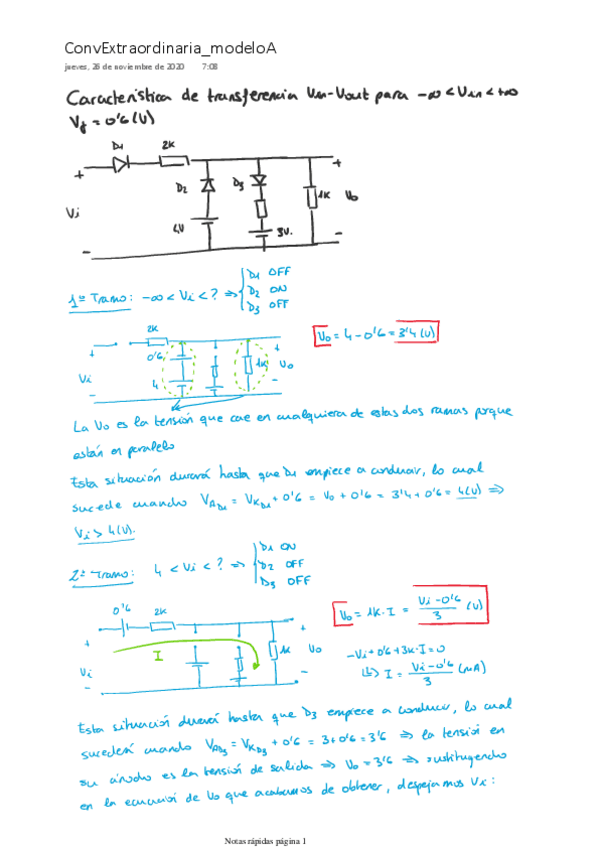 ConvExtraordinaria_modeloA
jueves, 26 de noviembre de 2020 7:08
Característica de transferencia Vin-Vout para -∞ < Vin < +∞
Vf = 0'6 (V)
D1 2K
+ D2 D3 + 1K Vo
Vi
4V 3V.
- -
1º Tramo: -∞ < Vi < ? ⇒ { D1 OFF
D2 ON
D3 OFF
2K
Vo = 4 - 0'6 = 3'4 (V)
+ 0'6 + 1K Vo
Vi 4
- -
La Vo es la tensión que cae en cualquiera de estas dos ramas porque
están en paralelo
Esta situación durará hasta que D1 empiece a conducir, lo cual
sucede cuando VAD1 = VKD1 + 0'6 = Vo + 0'6 = 3'4 + 0'6 = 4(V) ⇒
Vi > 4(V).
2º Tramo: 4 < Vi < ? ⇒ { D1 ON
D2 OFF
D3 OFF
0'6 2K
Vo = 1K · I = (Vi - 0'6)/3 (V)
+ I + 1K Vo
Vi
- -
-Vi + 0'6 + 3K · I = 0
I = (Vi - 0'6)/3 (mA)
Esta situación durará hasta que D3 empiece a conducir, lo cual
sucederá cuando VAD3 = VKD3 + 0'6 = 3 + 0'6 = 3'6 ⇒ la tensión en
su ánodo es la tensión de salida ⇒ Vo = 3'6 ⇒ sustituyendo
en la ecuación de Vo que acabamos de obtener, despejamos Vx:
Notas rápidas página 1